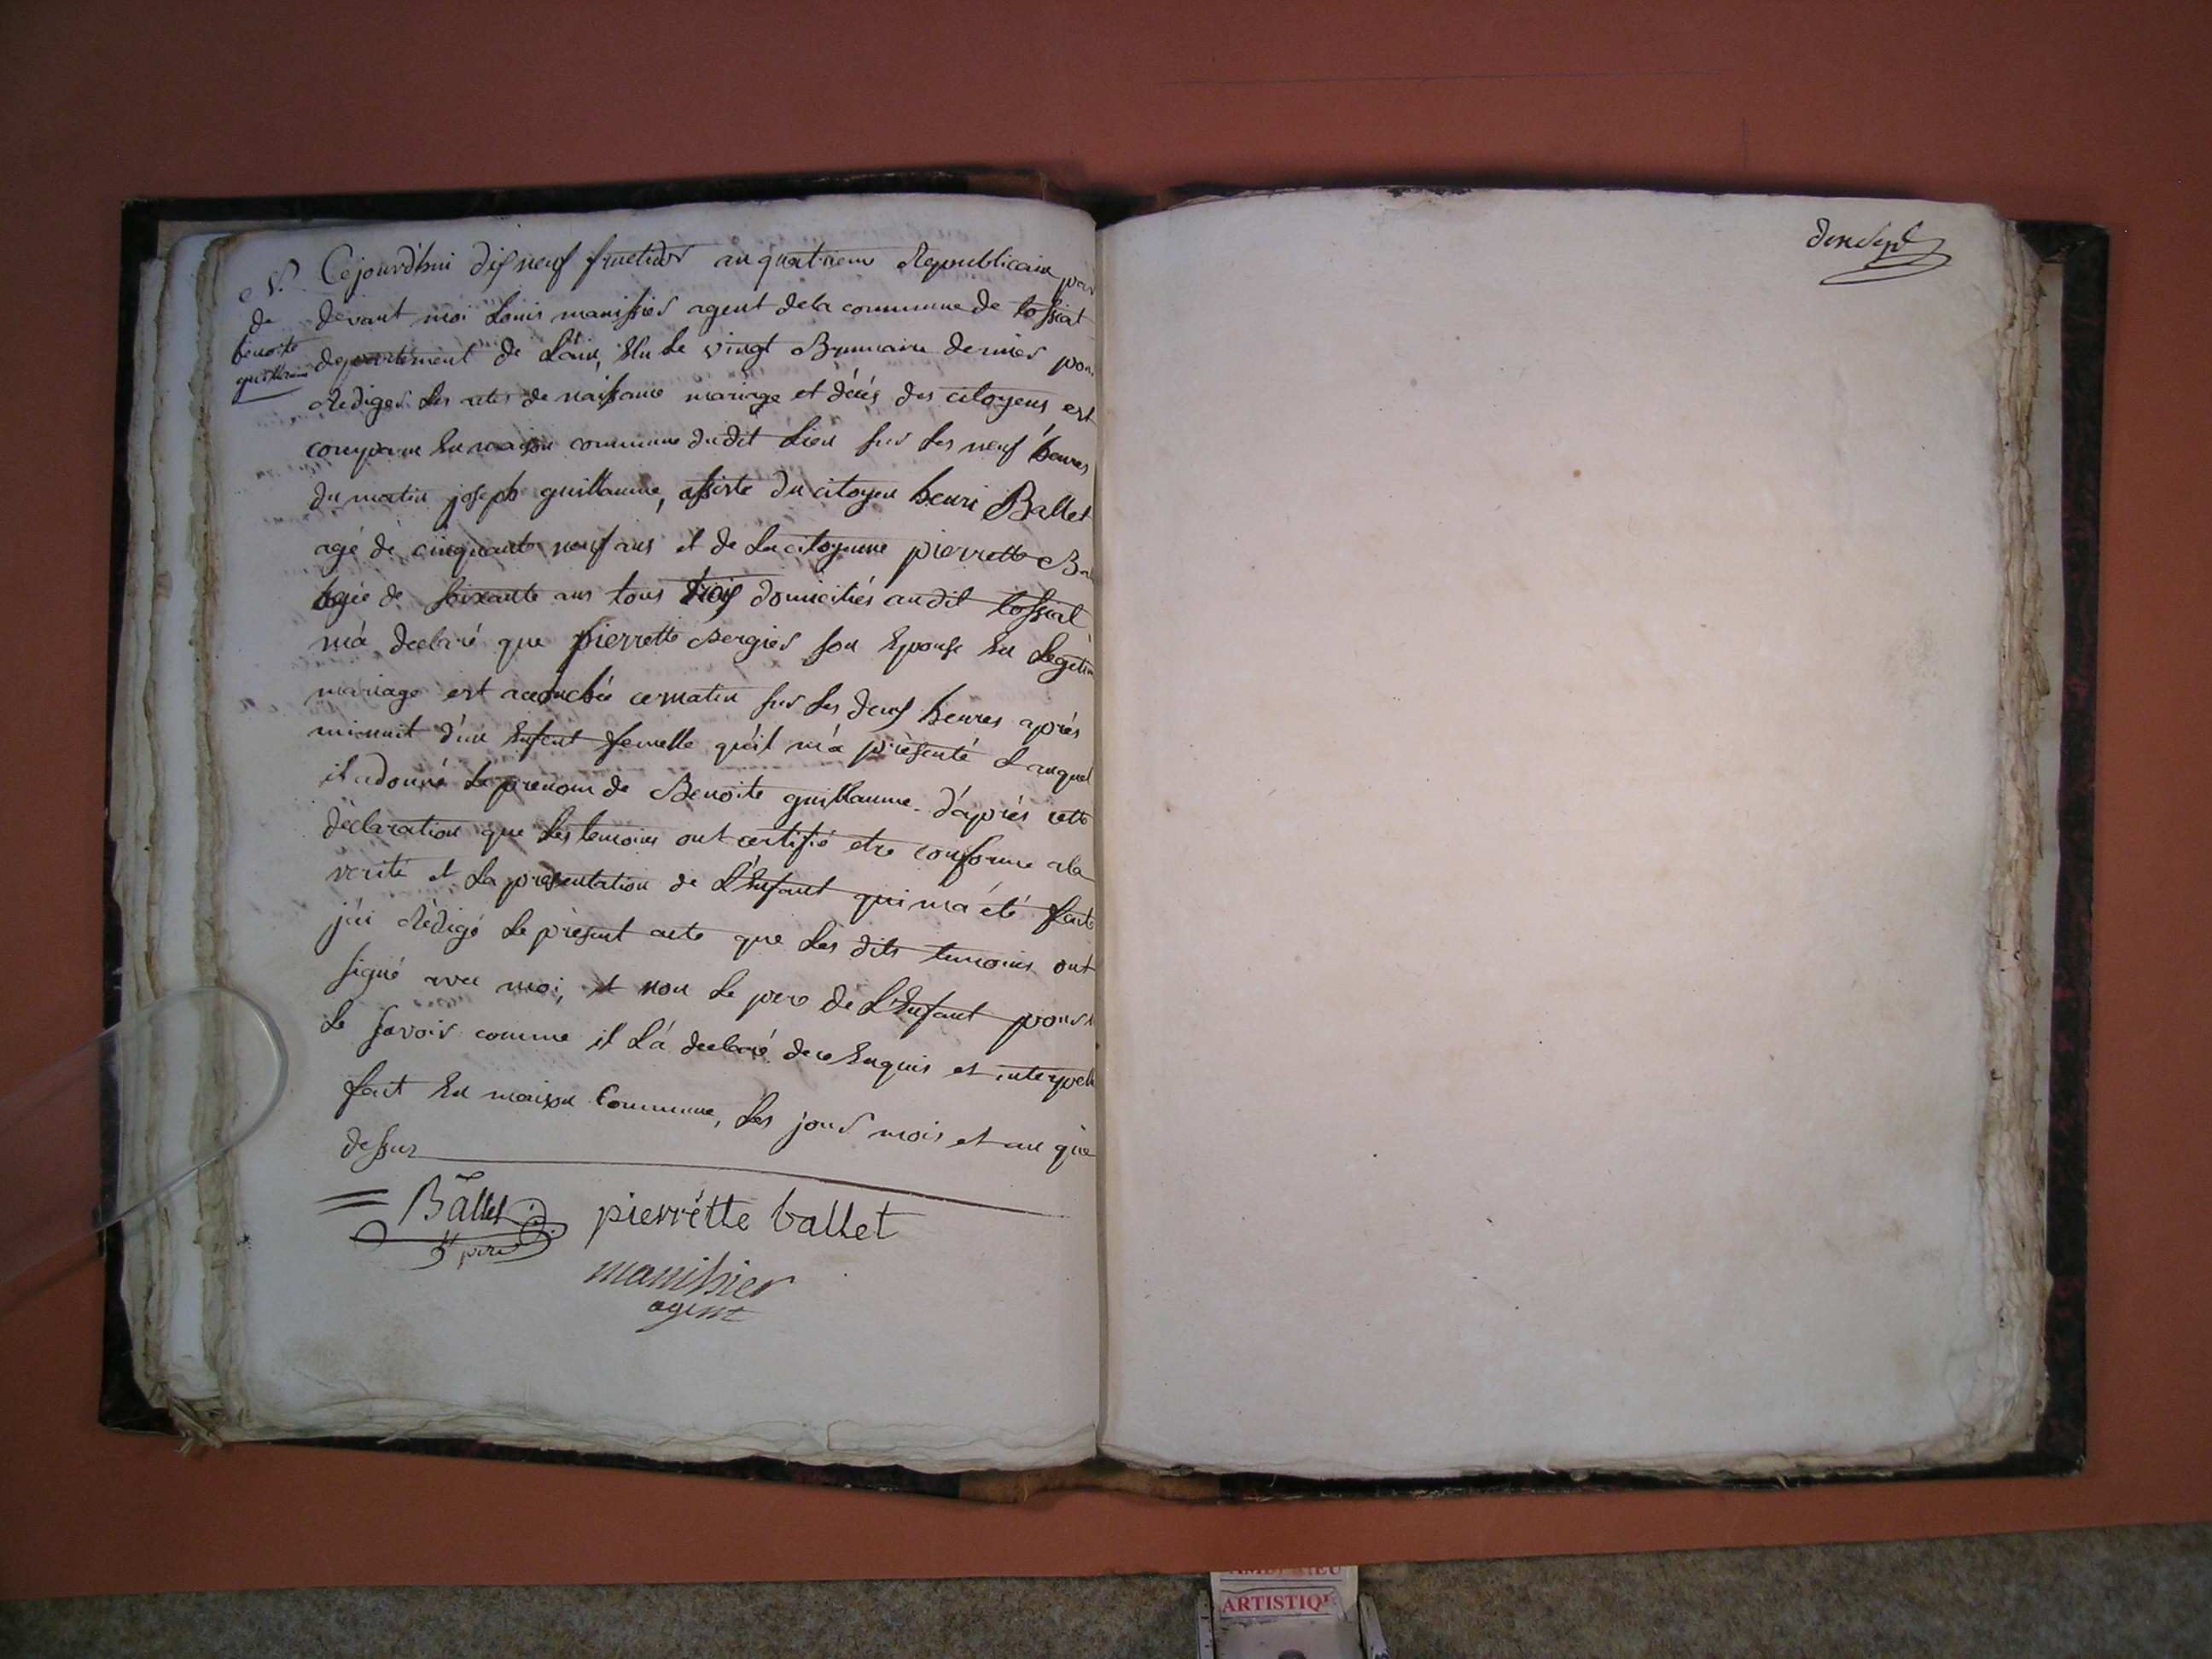 N.
de
benoite
guillaume
Cejourd'hui dix neuf fructidor an quatrieme Republicain par
devant moi Louis manissier agent dela commune de tossiat
departement de L'ain, Elu Le vingt Brumaire dernier pour
Rediger Les actes de naissance mariage et décés des citoyens, est
comparu En maison commune dudit Lieu sur Les neuf heures
du matin joseph guillaume, assisté du citoyen henri Ballet
agé de cinquante neuf ans et de La citoyenne pierrette Bal
agée de soixante ans tous trois domiciliés au dit tossiat
m'a declaré que pierrette Bergier son Epouse En Legitim
mariage est accouchée ce matin sur Les deux heures après
minuit d'un Enfant femelle qu'il m'a présenté Lauquel
il a donné Le prenom de Benoite guillaume. d'après cette
déclaration que Les temoins ont certifié etre conforme a la
verité et La presentation de L'Enfant qui m'a été faite
j'ai Rédigé Le présent acte que Les dits temoins ont
signé avec moi, et non Le pere de L'Enfant pour
Le savoir comme il L'a declaré de ce Enquis et interpellé
fait En maison Commune, Les jour mois et an que
dessus
Ballet pierrétte ballet
père
manissier
agent
ARTISTIQ